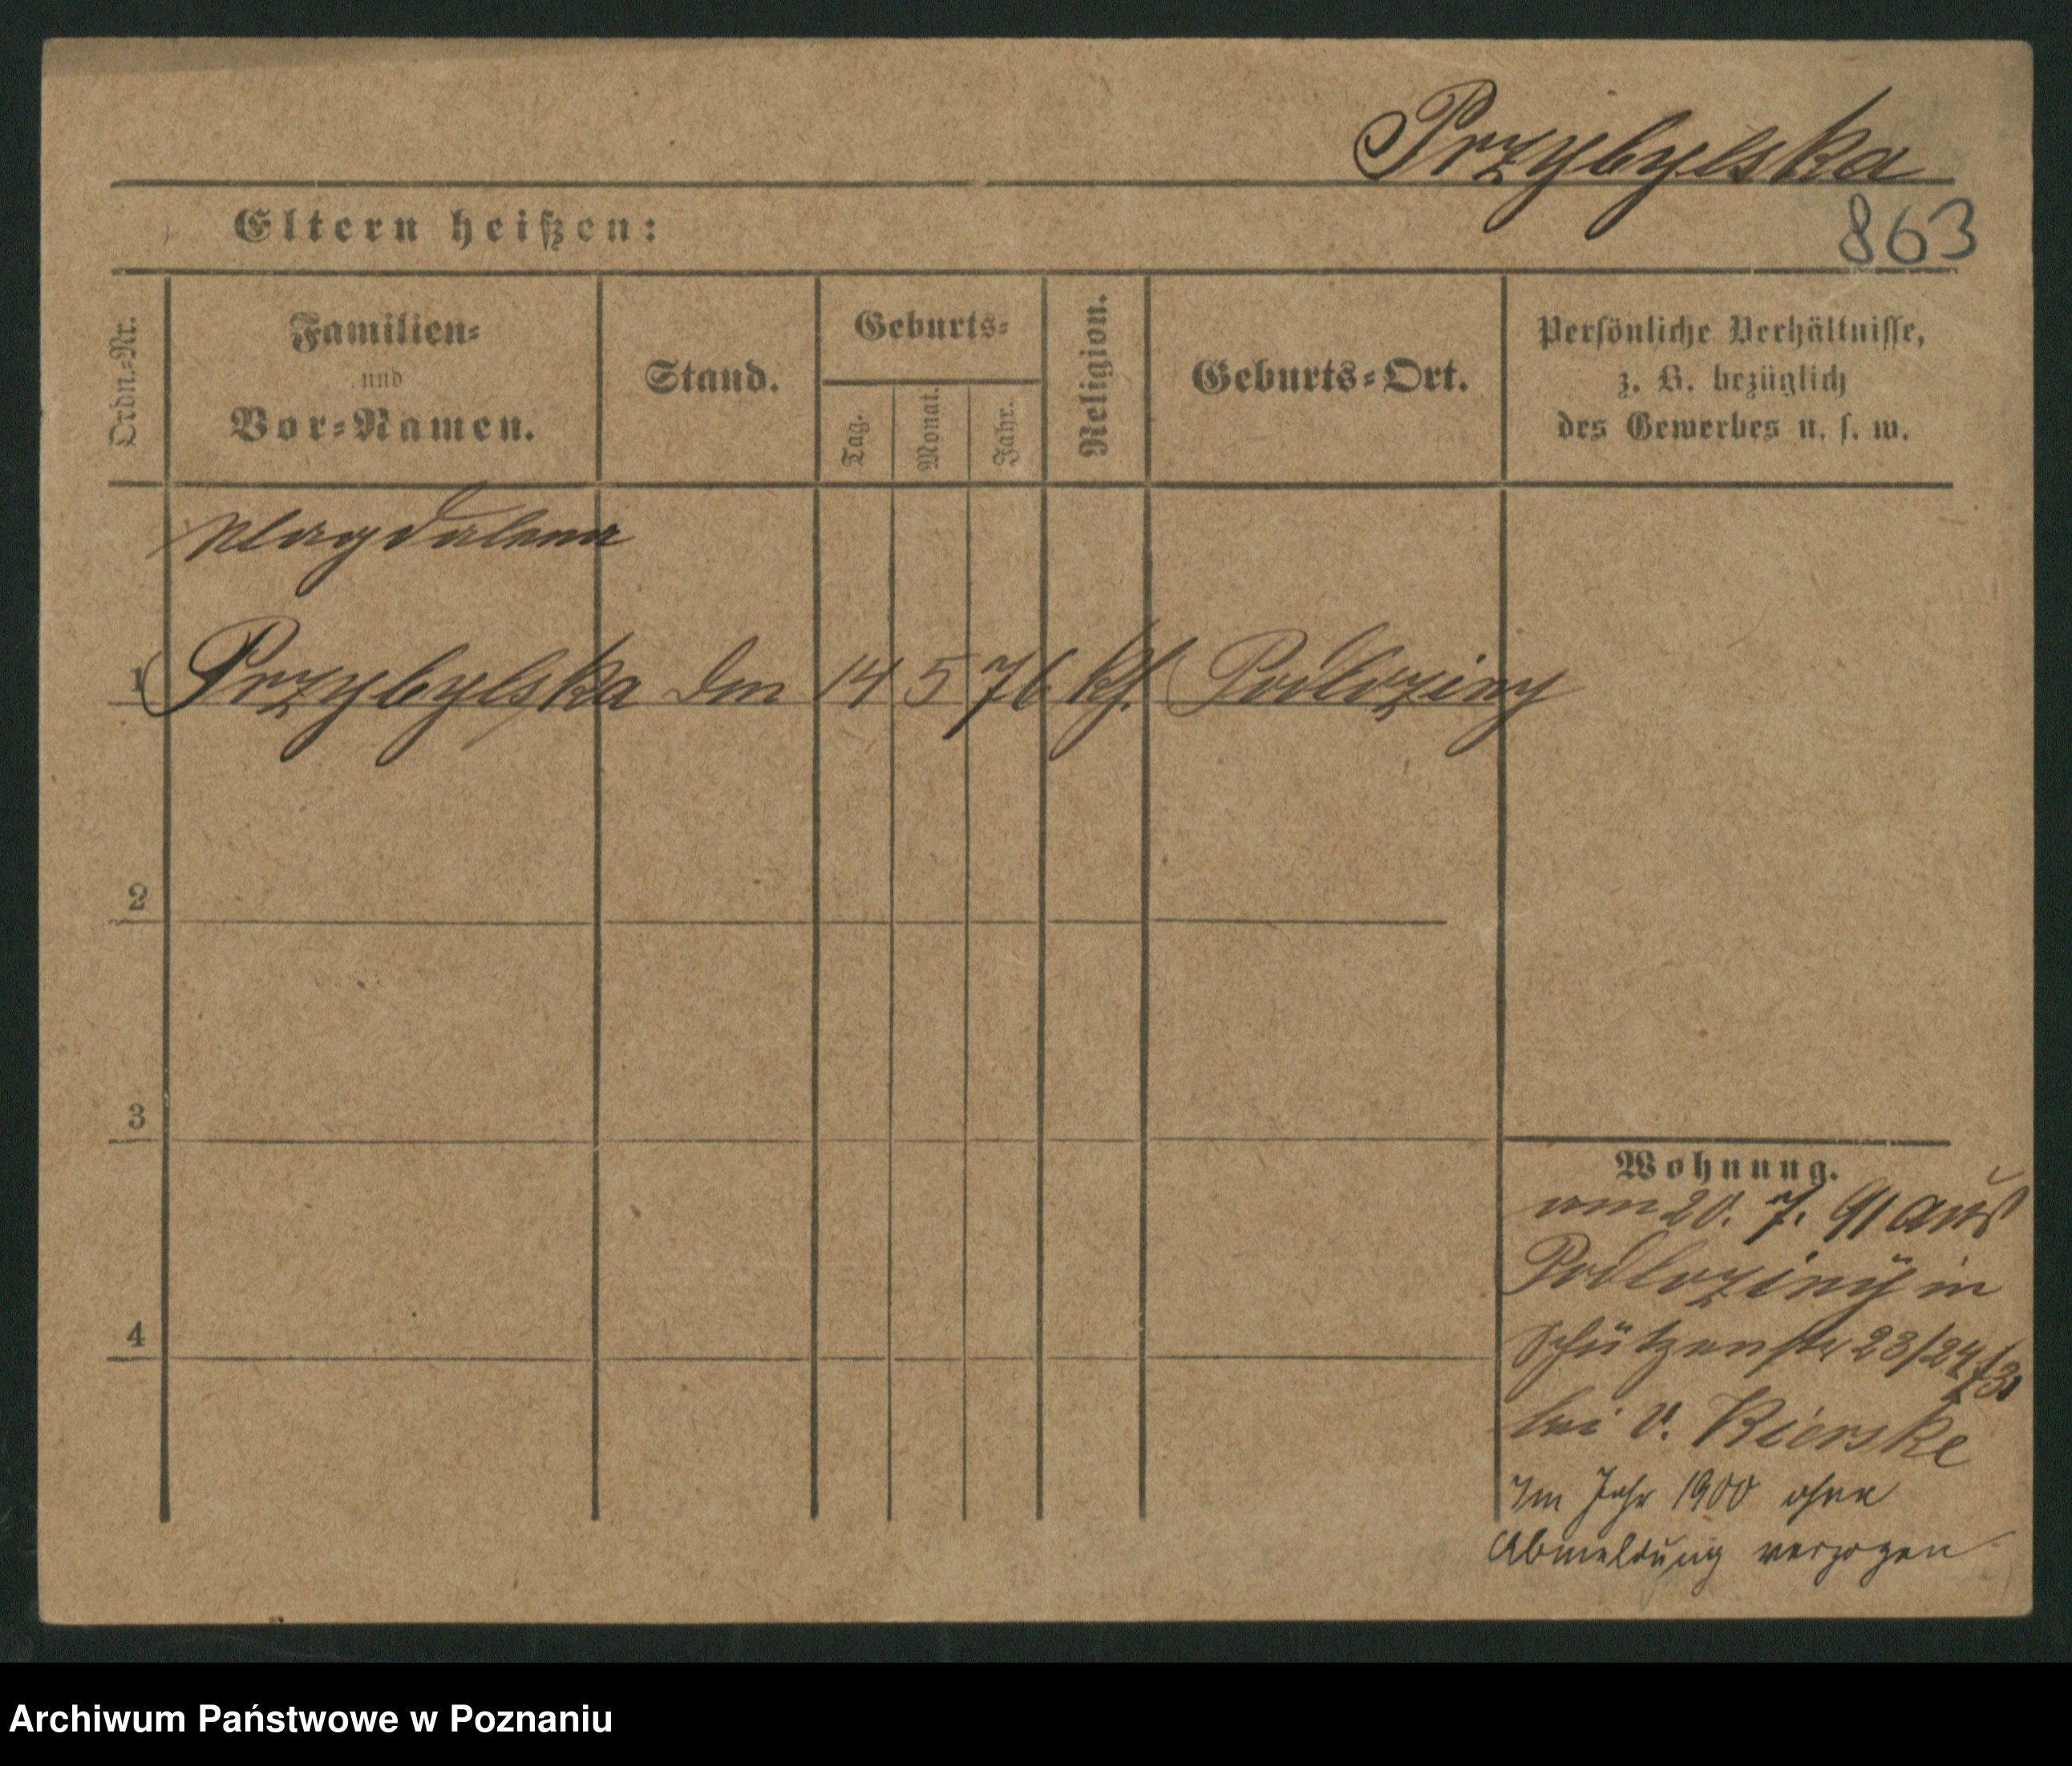 Przybylska
863
Eltern heißen:
Ordn.-Nr.
Familien-
und
Vor-Namen.
Stand.
Geburts-
Tag.
Monat.
Jahr.
Religion.
Geburts-Ort.
Persönliche Verhältnisse,
z. B. bezüglich
des Gewerbes u. s. w.
Magdalena
1 Przybylska 14 5 76 kth. Podloziny
2
3
4
Wohnung.
am 20. 7. 91 aus
Podloziny in
Schützenstr 23/24
bei v. Kierske
Im Jahr 1900 ohne
Abmeldung verzogen
Archiwum Państwowe w Poznaniu